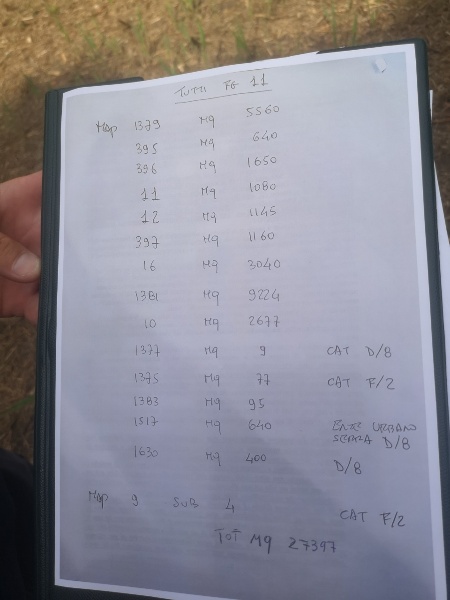 TUTTI FG 11
Map 1379 Mq 5560
395 Mq 640
396 Mq 1650
11 Mq 1080
12 Mq 1145
397 Mq 1160
16 Mq 3040
1381 Mq 9224
10 Mq 2677
1377 Mq 9 CAT D/8
1375 Mq 77 CAT F/2
1383 Mq 95
1517 Mq 640 ENTE URBANO
D/8
1630 Mq 400 D/8
Map 9 SUB 4 CAT F/2
TOT Mq 27397